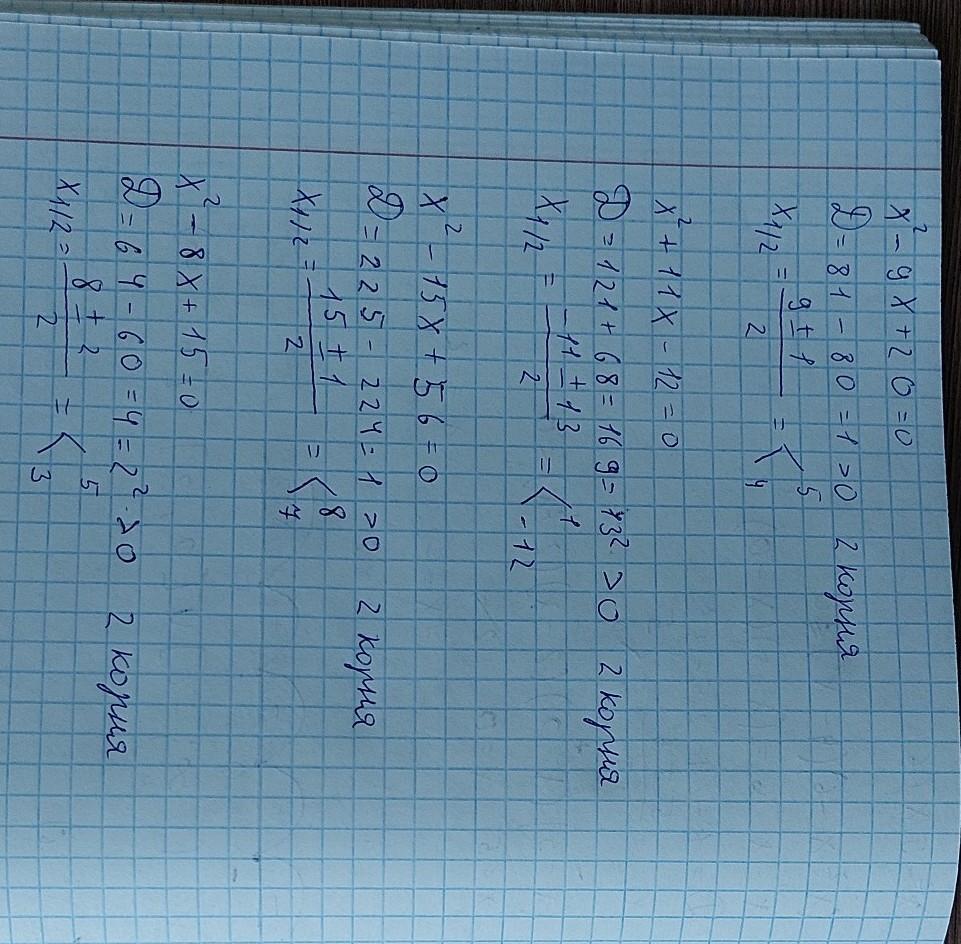 x² - 9x + 20 = 0
D = 81 - 80 = 1 > 0 2 корня
x1/2 = (9 ± 1)/2 = < 5 4
x² + 11x - 12 = 0
D = 121 + 68 = 169 = 13² > 0 2 корня
x1/2 = (-11 ± 13)/2 = < 1 -12
x² - 15x + 56 = 0
D = 225 - 224 = 1 > 0 2 корня
x1/2 = (15 ± 1)/2 = < 8 7
x² - 8x + 15 = 0
D = 64 - 60 = 4 = 2² > 0 2 корня
x1/2 = (8 ± 2)/2 = < 5 3